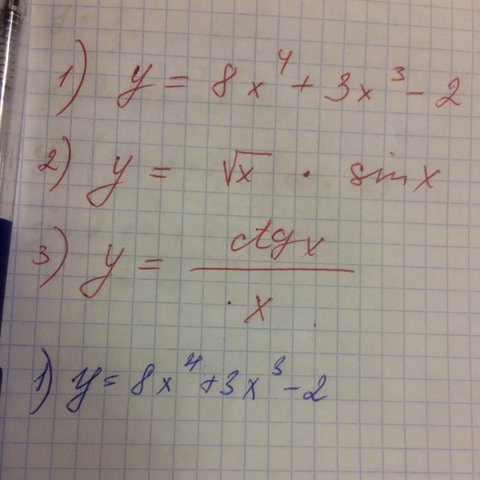 1) y = 8x⁴ + 3x³ - 2
2) y = √x · sin x
3) y = ctg x / x
1) y = 8x⁴ + 3x³ - 2